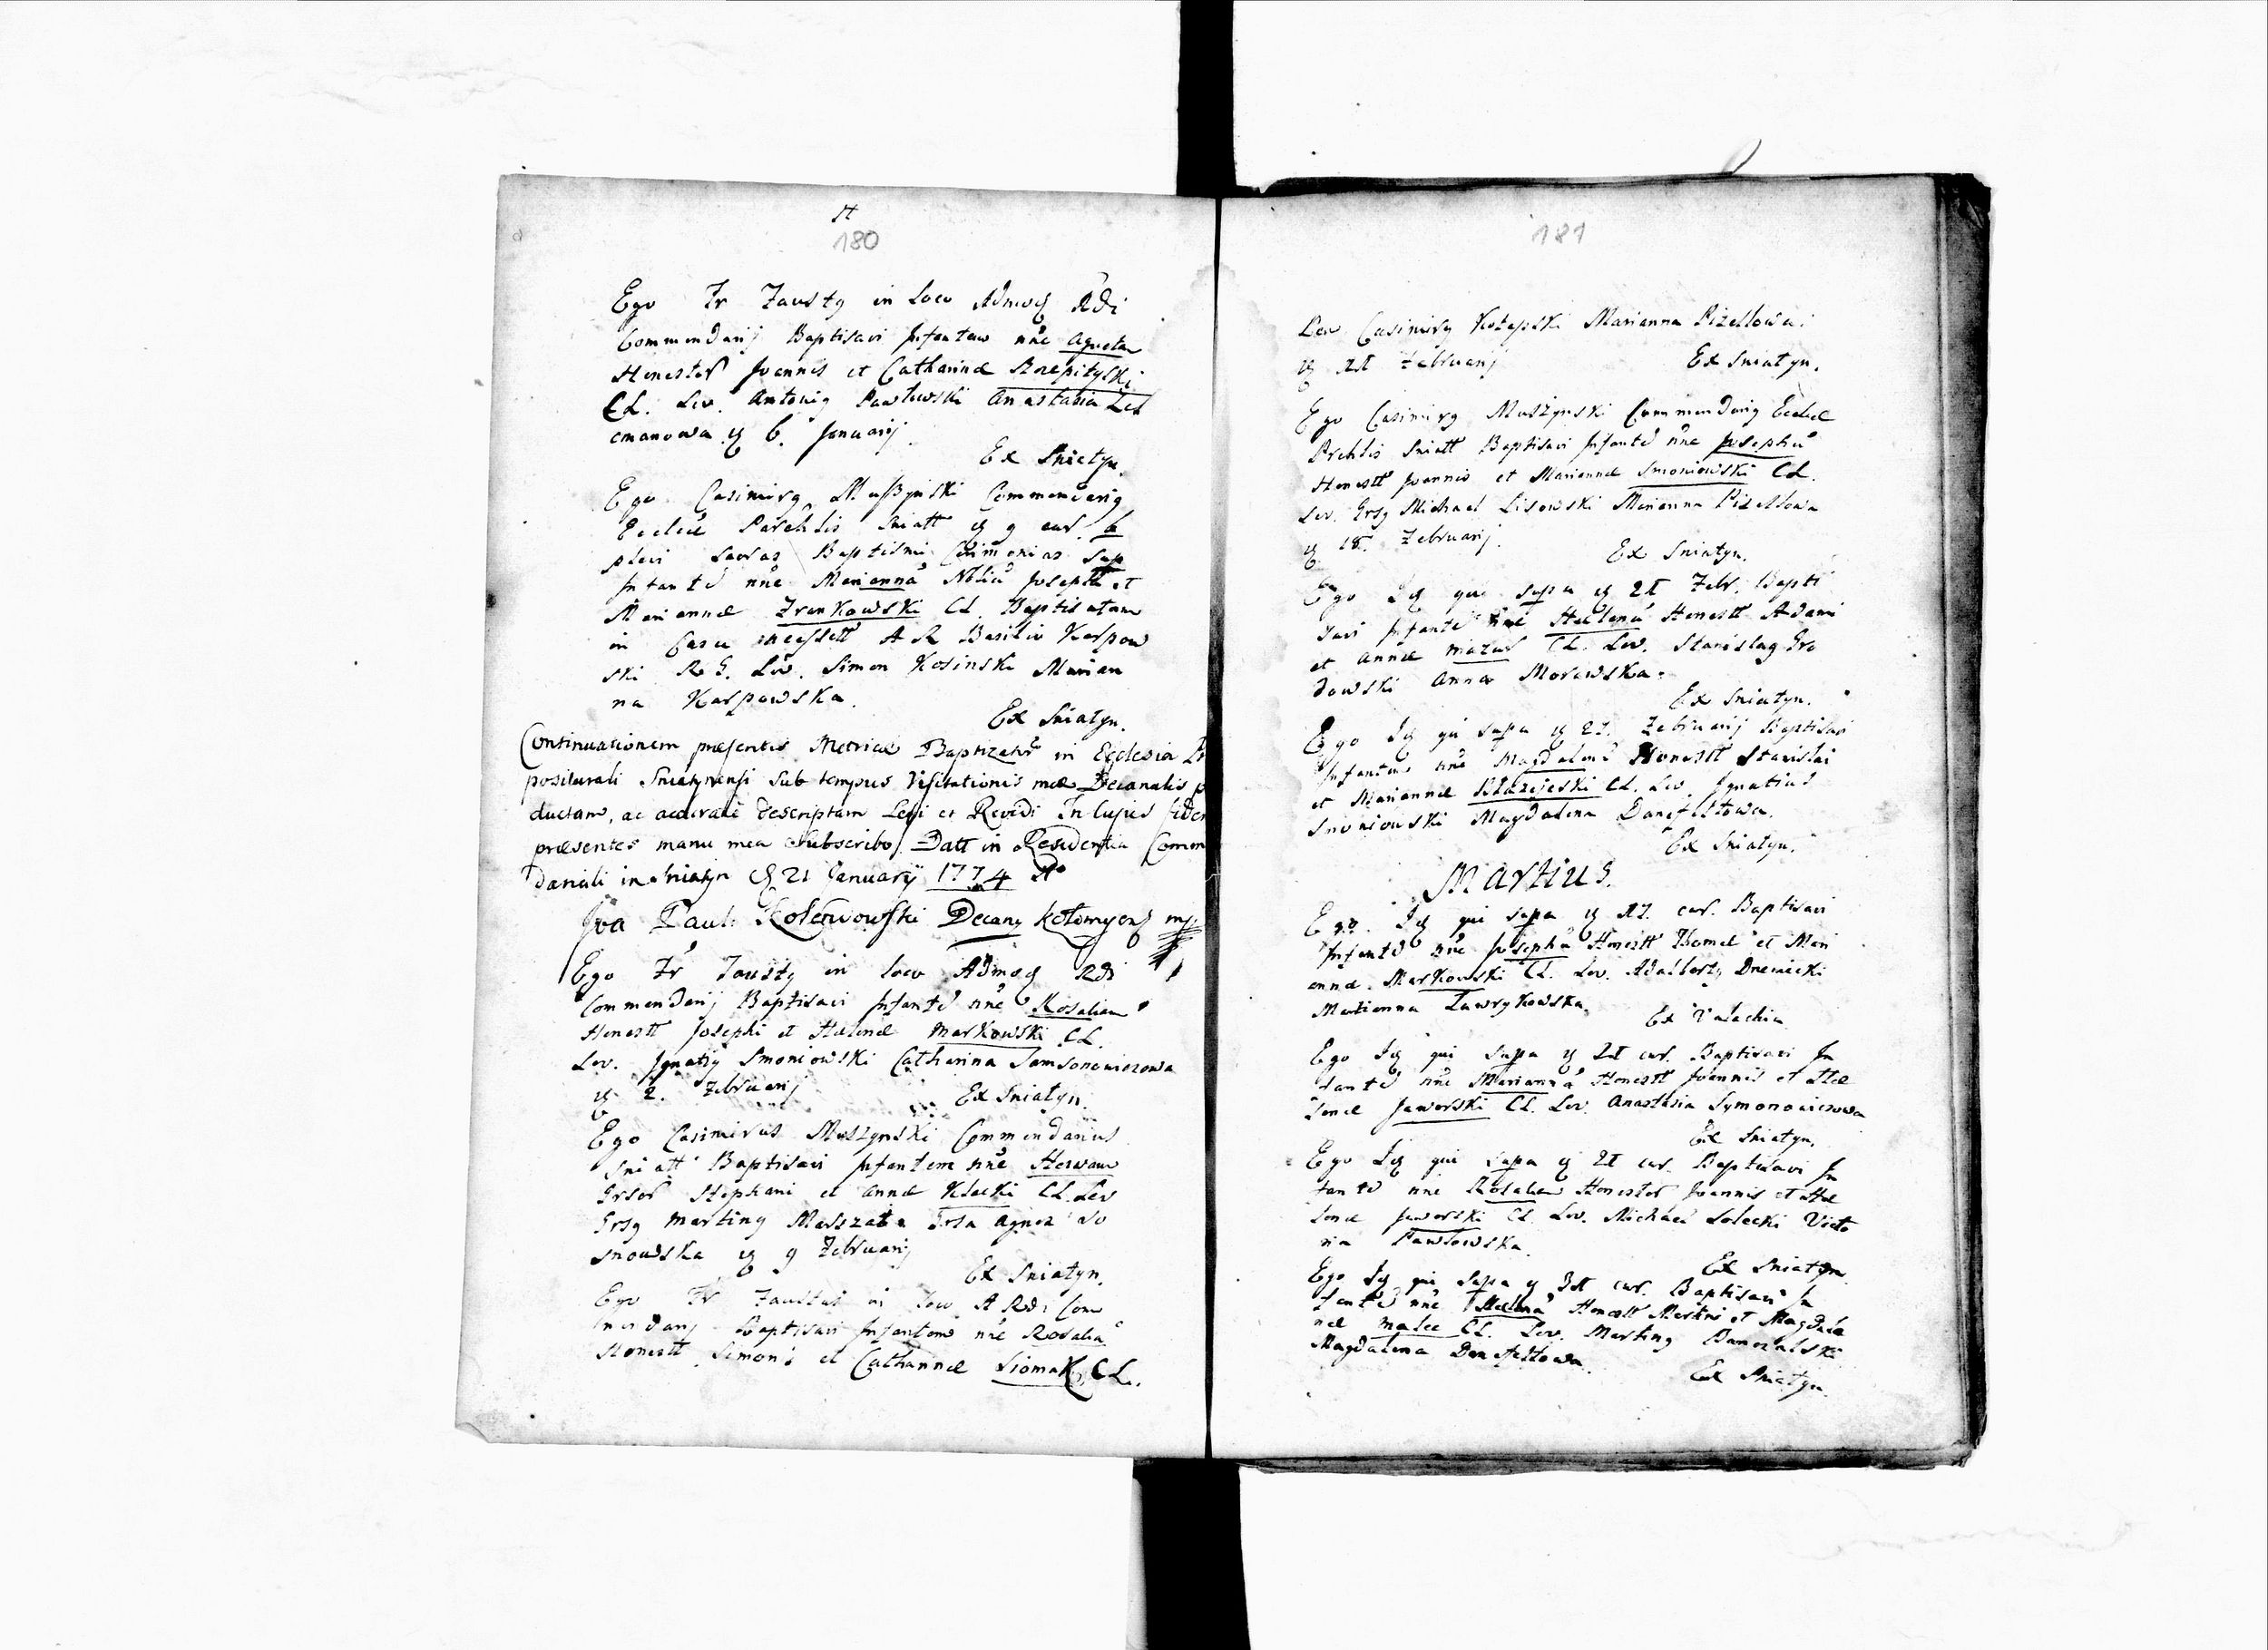 180
Ego Fr Fausty in loco Admog Rdi
Commendarij Baptisavi Infantem nne Agnetem
Honestor Joannis et Catharinæ Rzepityski
CL. Lev. Antonig Pawłowski Anastasia
cmanowa 6. Januarij.
Ex Sniatyn.
Ego Casimirg Muszynski Commendarig
Eccliæ Parchlis Sniatt 9 cur.
plevi sacras Baptismi Cerimonias sup
Infante nne Marianna Nbliu Joseph et
Mariannæ Frankowski CL. Baptisatam
in casu A R Basilio Karpow
ski R G. Lev. Simon Kosinski Marian
na Karpowska.
Ex Sniatyn.
Continuationem præsentis Metricæ Baptizator in Ecclesia
positurali Sniatynensi sub tempus Visitationis meæ Decanalis
ductam, ac accurate descriptam Legi et Revidi In cujus fidem
præsentes manu mea Subscribo. Datt in Residentia Comen
dariali in Sniatyn 21 January 1774 Ao
Paul Decang kołomyens mp
Ego Fr Fausty in loco Admog Rdi
Commendarij Baptisavi Infante nne Rosaliam
Honestt Josephi et Helenæ Markowski CL.
Lev. Ignatig Smoniowski Catharina Samsonowiczowa
2. Februarij
Ex Sniatyn.
Ego Casimirus Muszynski Commendarius
Sniatt Baptisavi Infantem nne
Grsor Stephani et Annæ Klecki CL. Lev
Grsg Marting Grsa Agnes So
snowska 9 Februarij
Ex Sniatyn.
Ego Fr Faustus in loco A Rdi Com
mendarij Baptisavi Infantem nne Rosalia
Honestt Simonis et Catharinæ Siomak CL.
181
Lev. Casimirg Marianna Pizellowa.
Februarij
Ex Sniatyn.
Ego Casimirg Muszynski Commendarig Eccliæ
Prchlis Sniatt Baptisavi Infante nne Josephu
Honestt Joannis et Mariannæ Smoniowski CL.
Lev. Grsg Michael Lisowski Marianna Pizellowa
18. Februarij.
Ex Sniatyn.
Ego Id qui supa Febr. Bapti
savi Infante nne Helena Honestt Adami
et Annæ Mazur CL. Lev. Stanislag Gro
dowski Anna Morawska.
Ex Sniatyn.
Ego Id qui supa 27. Februarij Baptisavi
Infantem nne Magdalena Honestt Stanislai
et Mariannæ Błazejeski CL. Lev. Ignatius
Smoniowski Magdalena Daneflłowa.
Ex Sniatyn.
Martius.
Ego Id qui supa cur. Baptisavi
Infante nne Josephu Honestt Thomæ et Mari
annæ Markowski CL. Lev. Adalbertg
Marianna Ławrykowska.
Ex Valachia
Ego Id qui supa cur. Baptisavi In
fante nne Marianna Honestt Joannis et Hæ
lenæ Jaworski CL. Lev. Anastasia Symonowiczowa
Ex Sniatyn.
Ego Id qui supa cur. Baptisavi In
fante nne Rosaliam Honestor Joannis et Hæ
lenæ Jaworski CL. Lev. Michael Solecki Victo
ria Pawłowska.
Ex Sniatyn
Ego Id qui supa cur. Baptisavi In
fante nne Helena Honestt Martini et Magdale
næ Malec CL. Lev. Marting
Magdalena
Ex Sniatyn.